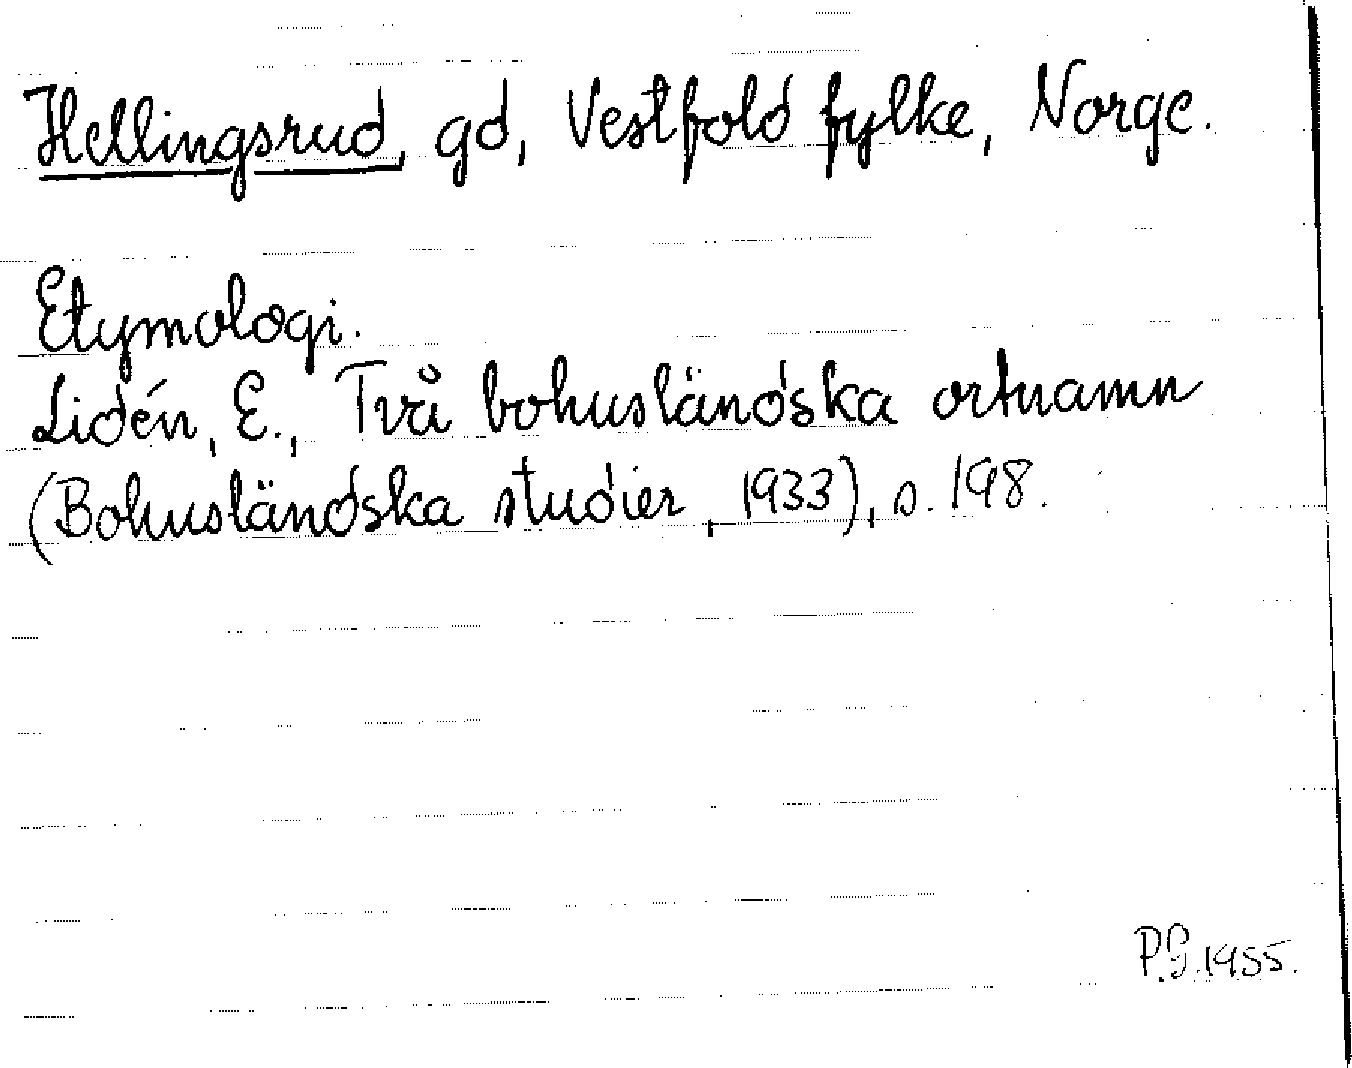 Hellingsrud, gd, Vestfold fylke, Norge.
Etymologi.
Lidén, E., Två bohusländska ortnamn
(Bohusländska studier, 1933), s. 198.
P.G. 1955.